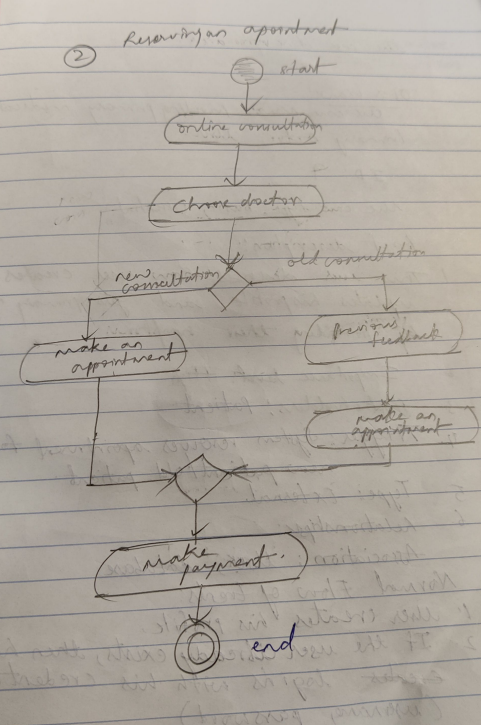 2
Reserving an apointment
start
online consultation
choose doctor
new
consultation
old consultation
make an
appointment
Previous
feedback
make an
appointment
make
payment.
end